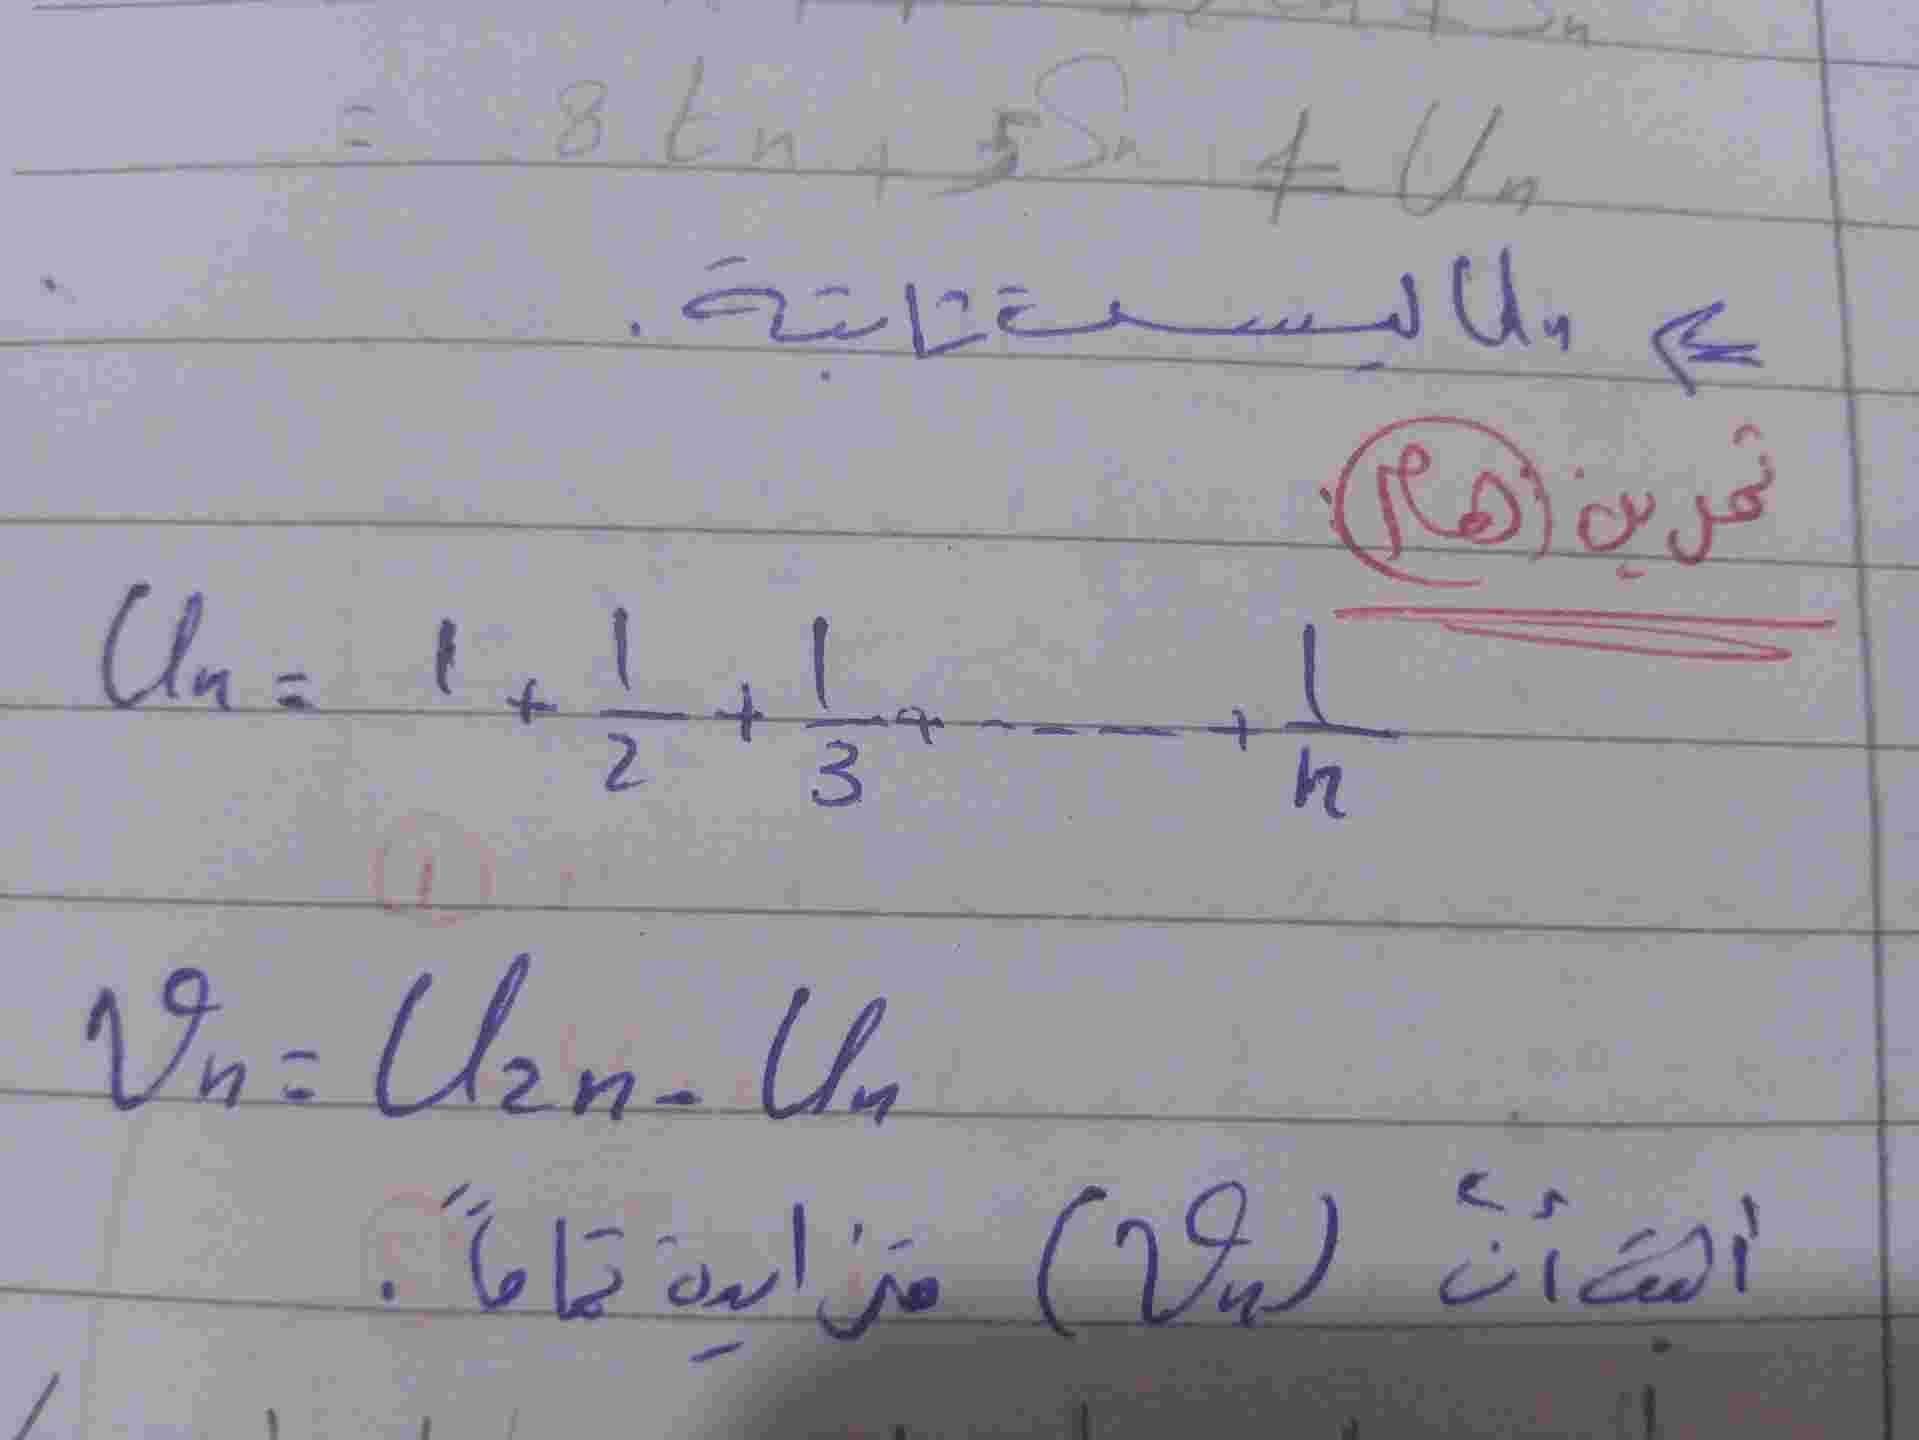 = 8 tn + 5Sn ≠ Un
⇐ Un ليست ثابتة .
تمرين (هام) :
Un = 1 + 1/2 + 1/3 + ---- + 1/n
1
Vn = U2n - Un
أثبت أن (Vn) متزايدة تماماً .